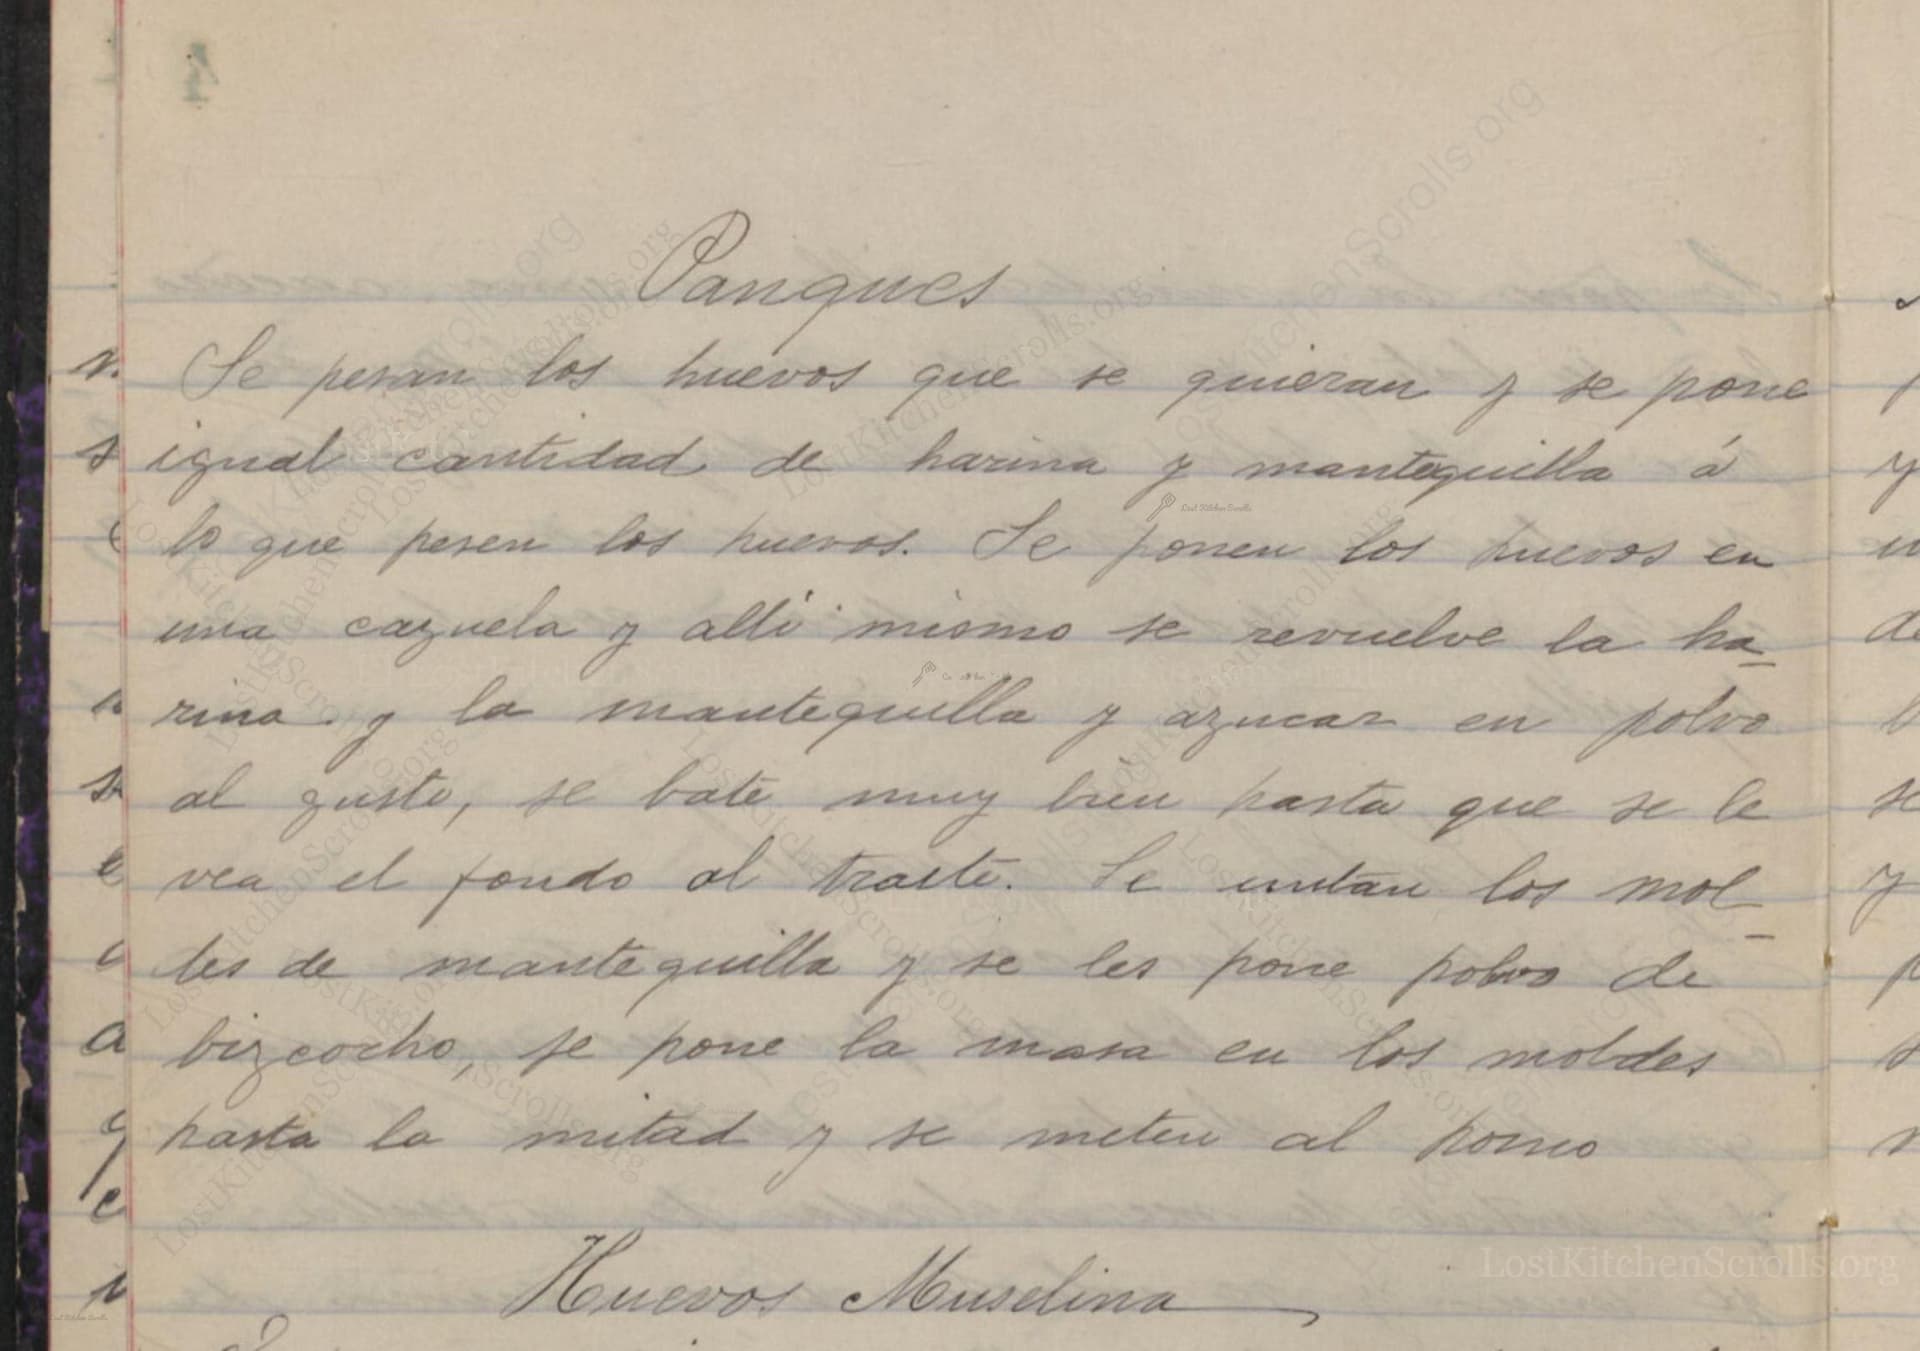 Panques
Se pesan los huevos que se quieran y se pone
igual cantidad de harina y mantequilla á
lo que pesen los huevos. Se ponen los huevos en
una cazuela y allí mismo se revuelve la ha-
rina y la mantequilla y azucar en polvo
al gusto, se bate muy bien hasta que se le
vea el fondo al traste. Se untan los mol-
des de mantequilla y se les pone polvo de
bizcocho, se pone la masa en los moldes
hasta la mitad y se meten al horno
Huevos Muselina
LostKitchenScrolls.org